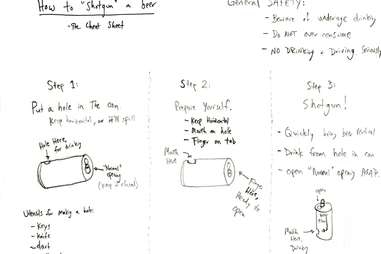 How to "Shotgun" a beer
- The Cheat Sheet
General SAFETY:
- Beware of underage drinking
- Do NOT over consume
- NO DRINKing & Driving Seriously
Step 1:
Put a hole in The can
Keep horizontal, or it'll spill
Hole Here,
for drinking
"Normal"
opening
(keep closed)
Utensils for making a hole:
- Keys
- Knife
- dart
Step 2:
Prepare Yourself.
- Keep Horizontal
- Mouth on hole
- Finger on tab
Mouth
Here
Finger
Here,
Ready to
open
Step 3:
Shotgun!
- Quickly bring to vertical
- Drink from hole in can
- open "Normal" opening ASAP.
open
Mouth
Here,
Drinking